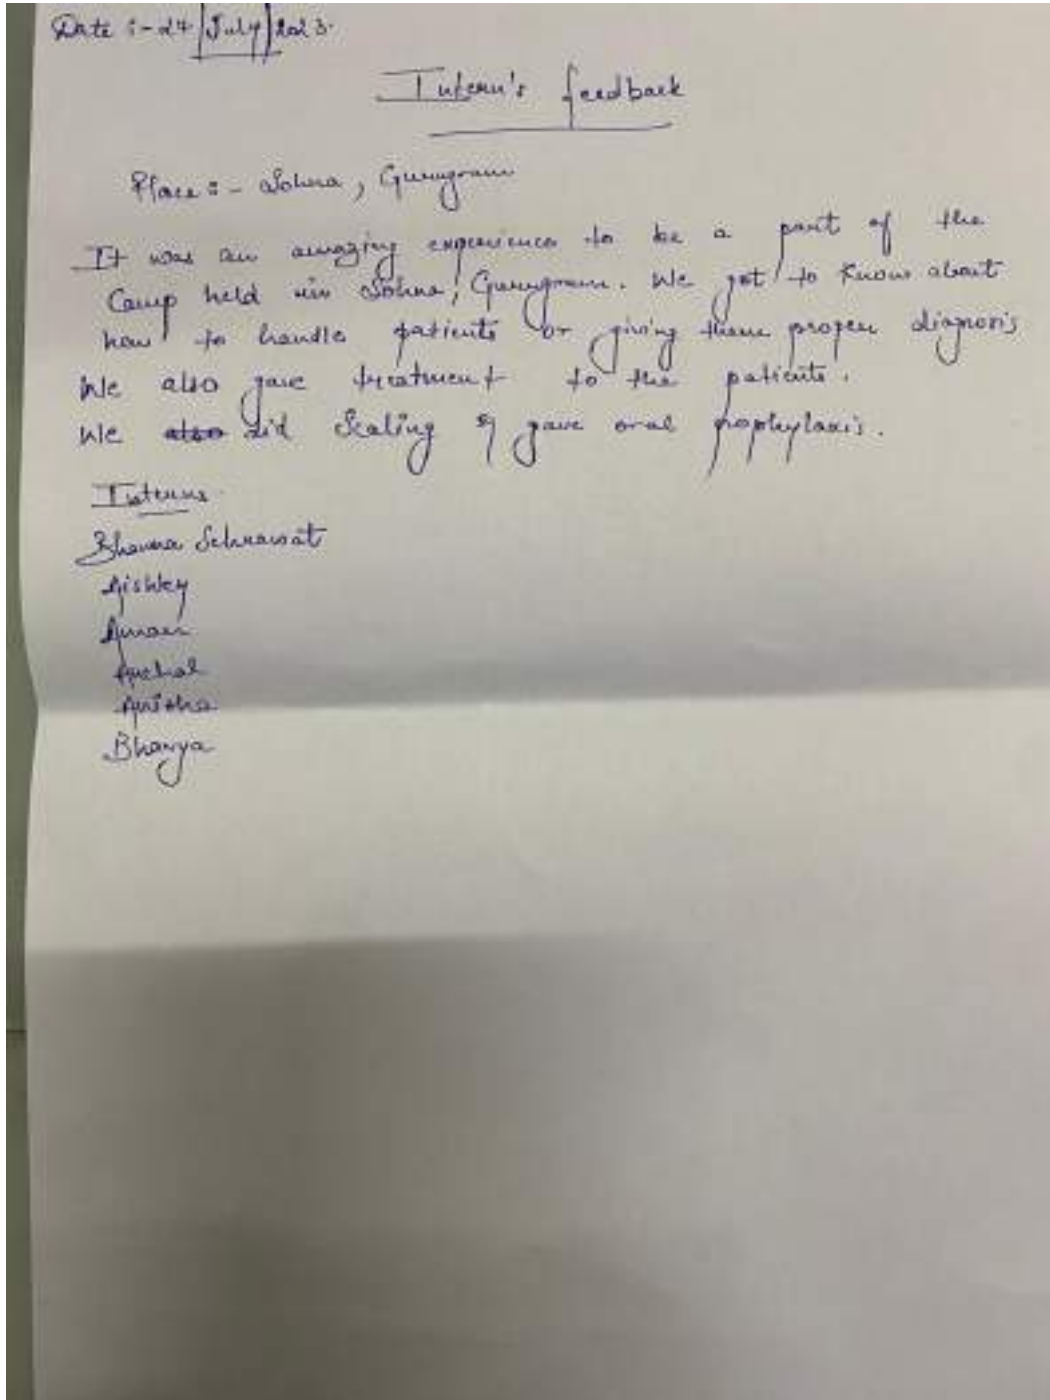 Date :- 24/July/2023.
Intern's feedback
Place :- Sohna, Gurugram
It was an amazing experience to be a part of the
Camp held in Sohna, Gurugram. We got to know about
how to handle patients or giving them proper diagnosis
We also gave treatment to the patients.
We also did Scaling & gave oral prophylaxis.
Interns
Bhawna Sehrawat
Aiswey
Aman
Anchal
Anisha
Bhavya